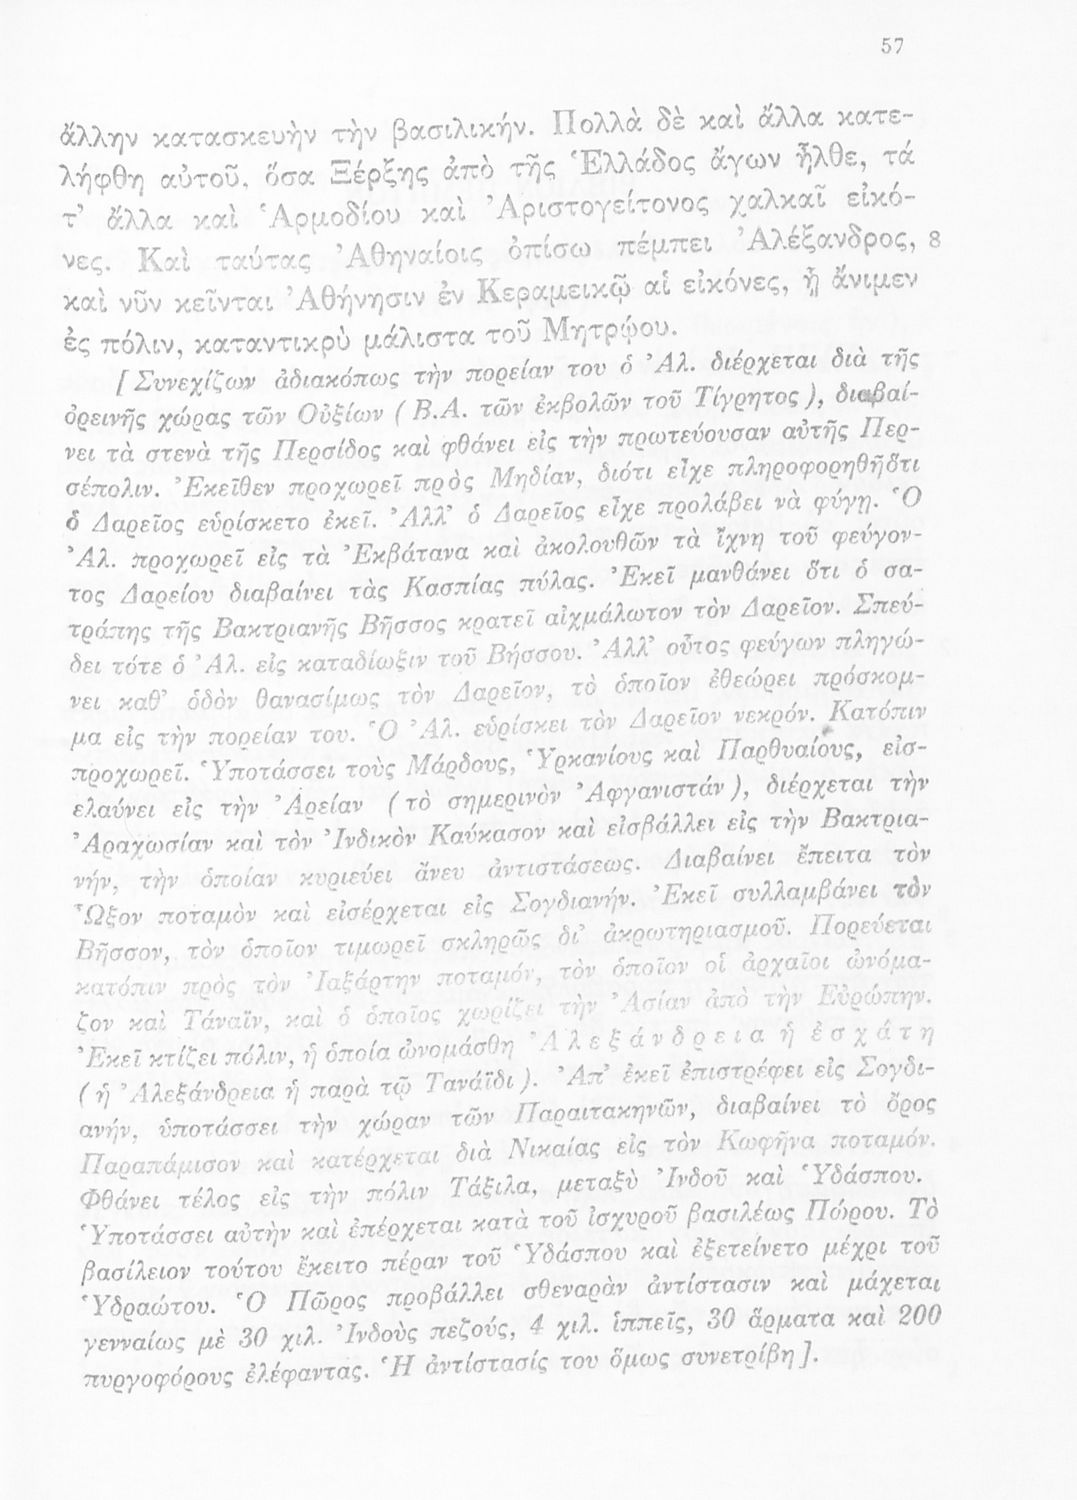 57
ἄλλην κατασκευὴν τὴν βασιλικήν. Πολλὰ δὲ καὶ ἄλλα κατε-
λήφθη αὐτοῦ, ὅσα Ξέρξης ἀπὸ τῆς Ἑλλάδος ἄγων ἦλθε, τά
τ’ ἄλλα καὶ Ἁρμοδίου καὶ Ἀριστογείτονος χαλκαῖ εἰκό-
νες. Καὶ ταύτας Ἀθηναίοις ὀπίσω πέμπει Ἀλέξανδρος, 8
καὶ νῦν κεῖνται Ἀθήνησιν ἐν Κεραμεικῷ αἱ εἰκόνες, ᾗ ἄνιμεν
ἐς πόλιν, καταντικρὺ μάλιστα τοῦ Μητρῴου.
[Συνεχίζων ἀδιακόπως τὴν πορείαν του ὁ Ἀλ. διέρχεται διὰ τῆς
ὀρεινῆς χώρας τῶν Οὐξίων (Β.Α. τῶν ἐκβολῶν τοῦ Τίγρητος), διαβαί-
νει τὰ στενὰ τῆς Περσίδος καὶ φθάνει εἰς τὴν πρωτεύουσαν αὐτῆς Περ-
σέπολιν. Ἐκεῖθεν προχωρεῖ πρὸς Μηδίαν, διότι εἶχε πληροφορηθῆ ὅτι
ὁ Δαρεῖος εὑρίσκετο ἐκεῖ. Ἀλλ’ ὁ Δαρεῖος εἶχε προλάβει νὰ φύγῃ. Ὁ
Ἀλ. προχωρεῖ εἰς τὰ Ἐκβάτανα καὶ ἀκολουθῶν τὰ ἴχνη τοῦ φεύγον-
τος Δαρείου διαβαίνει τὰς Κασπίας πύλας. Ἐκεῖ μανθάνει ὅτι ὁ σα-
τράπης τῆς Βακτριανῆς Βῆσσος κρατεῖ αἰχμάλωτον τὸν Δαρεῖον. Σπεύ-
δει τότε ὁ Ἀλ. εἰς καταδίωξιν τοῦ Βήσσου. Ἀλλ’ οὗτος φεύγων πληγώ-
νει καθ’ ὁδὸν θανασίμως τὸν Δαρεῖον, τὸ ὁποῖον ἐθεώρει πρόσκομ-
μα εἰς τὴν πορείαν του. Ὁ Ἀλ. εὑρίσκει τὸν Δαρεῖον νεκρόν. Κατόπιν
προχωρεῖ. Ὑποτάσσει τοὺς Μάρδους, Ὑρκανίους καὶ Παρθυαίους, εἰσ-
ελαύνει εἰς τὴν Ἀρείαν (τὸ σημερινὸν Ἀφγανιστάν), διέρχεται τὴν
Ἀραχωσίαν καὶ τὸν Ἰνδικὸν Καύκασον καὶ εἰσβάλλει εἰς τὴν Βακτρια-
νήν, τὴν ὁποίαν κυριεύει ἄνευ ἀντιστάσεως. Διαβαίνει ἔπειτα τὸν
Ὦξον ποταμὸν καὶ εἰσέρχεται εἰς Σογδιανήν. Ἐκεῖ συλλαμβάνει τὸν
Βῆσσον, τὸν ὁποῖον τιμωρεῖ σκληρῶς δι’ ἀκρωτηριασμοῦ. Πορεύεται
κατόπιν πρὸς τὸν Ἰαξάρτην ποταμόν, τὸν ὁποῖον οἱ ἀρχαῖοι ὠνόμα-
ζον καὶ Τάναϊν, καὶ ὁ ὁποῖος χωρίζει τὴν Ἀσίαν ἀπὸ τὴν Εὐρώπην.
Ἐκεῖ κτίζει πόλιν, ἡ ὁποία ὠνομάσθη Ἀλεξάνδρεια ἡ ἐσχάτη
(ἡ Ἀλεξάνδρεια ἡ παρὰ τῷ Τανάϊδι). Ἀπ’ ἐκεῖ ἐπιστρέφει εἰς Σογδι-
ανήν, ὑποτάσσει τὴν χώραν τῶν Παραιτακηνῶν, διαβαίνει τὸ ὄρος
Παραπάμισον καὶ κατέρχεται διὰ Νικαίας εἰς τὸν Κωφῆνα ποταμόν.
Φθάνει τέλος εἰς τὴν πόλιν Τάξιλα, μεταξὺ Ἰνδοῦ καὶ Ὑδάσπου.
Ὑποτάσσει αὐτὴν καὶ ἐπέρχεται κατὰ τοῦ ἰσχυροῦ βασιλέως Πώρου. Τὸ
βασίλειον τούτου ἔκειτο πέραν τοῦ Ὑδάσπου καὶ ἐξετείνετο μέχρι τοῦ
Ὑδραώτου. Ὁ Πῶρος προβάλλει σθεναρὰν ἀντίστασιν καὶ μάχεται
γενναίως μὲ 30 χιλ. Ἰνδοὺς πεζούς, 4 χιλ. ἱππεῖς, 30 ἅρματα καὶ 200
πυργοφόρους ἐλέφαντας. Ἡ ἀντίστασίς του ὅμως συνετρίβη].